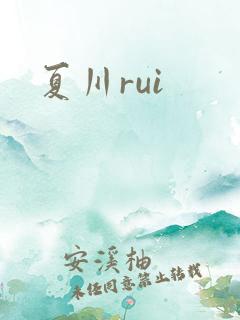 夏川rui
安溪柚
未经同意禁止转载